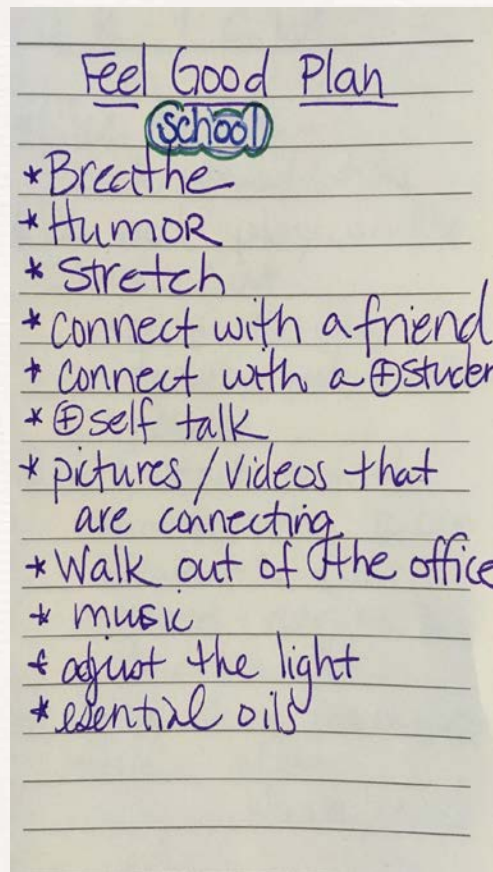 Feel Good Plan
school
*Breathe
*Humor
*Stretch
*connect with a friend
*connect with a ⊕studen
*⊕self talk
*pictures/videos that
are connecting
*Walk out of the office
*music
*adjust the light
*esential oils